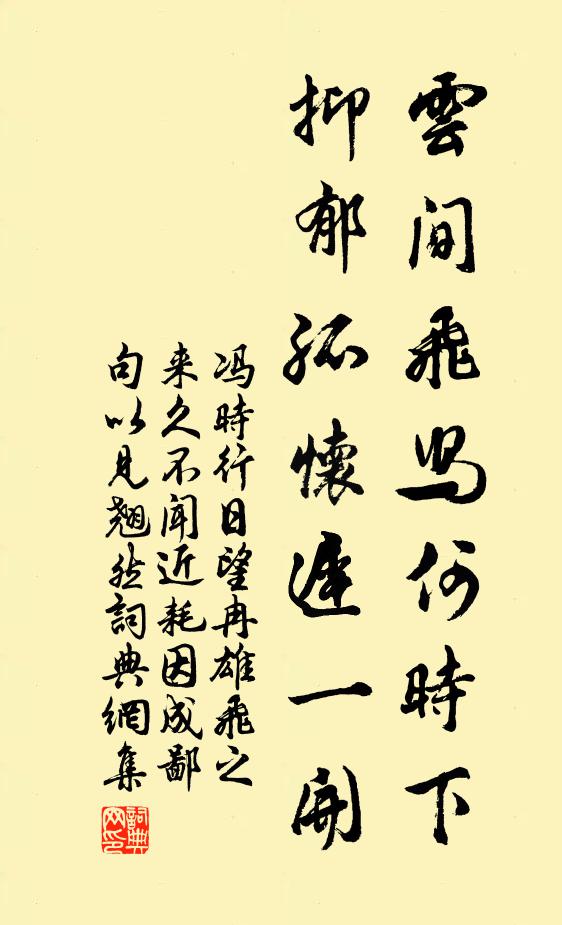 雲間飛舄何時下
抑郁孤懷遲一開
冯時行日望冉雄飛之
来久不闻近耗因成鄙
句以見翹然詞典網集
詞典网印